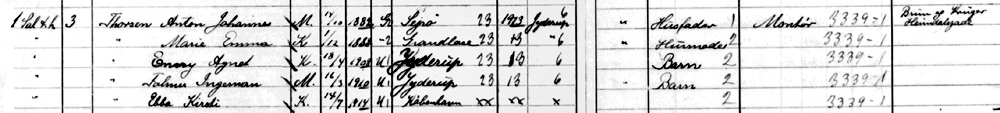 1 Sal t.h. 3 Thorsen Anton Johannes M. 11/10 1882 G. Sejrø 23 1913 Jyderup 6 " Husfader 1 Montør 3339-1 Brun og Heimdalsgade
" " Marie Emma K. 1/12 1888 -2 Grandløse 23 13 " 6 " Husmoder 2 3339-1
" " Emmy Agnet K. 18/4 1908 U. Jyderup 23 13 6 " Barn 2 3339-1
" " Folmer Ingeman M. 12/3 1910 U. Jyderup 23 13 6 " Barn 2 3339-1
" " Ebba Kirsti K. 14/7 1914 U. København xx xx x 2 3339-1